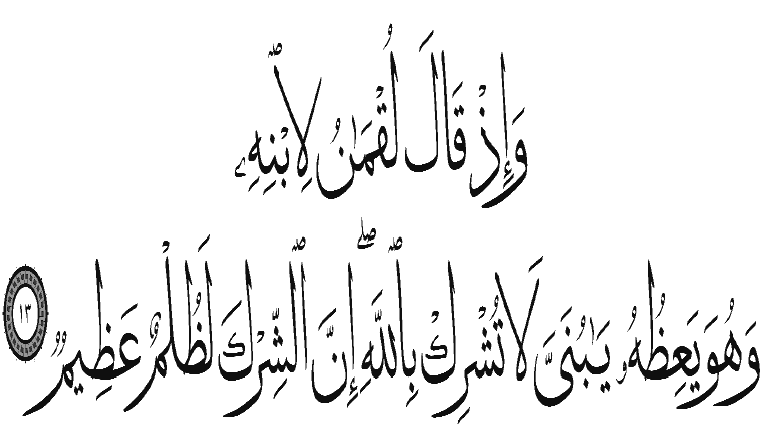 وَإِذْ قَالَ لُقْمَٰنُ لِٱبْنِهِۦ
وَهُوَ يَعِظُهُۥ يَٰبُنَىَّ لَا تُشْرِكْ بِٱللَّهِ ۖ إِنَّ ٱلشِّرْكَ لَظُلْمٌ عَظِيمٌ ١٣